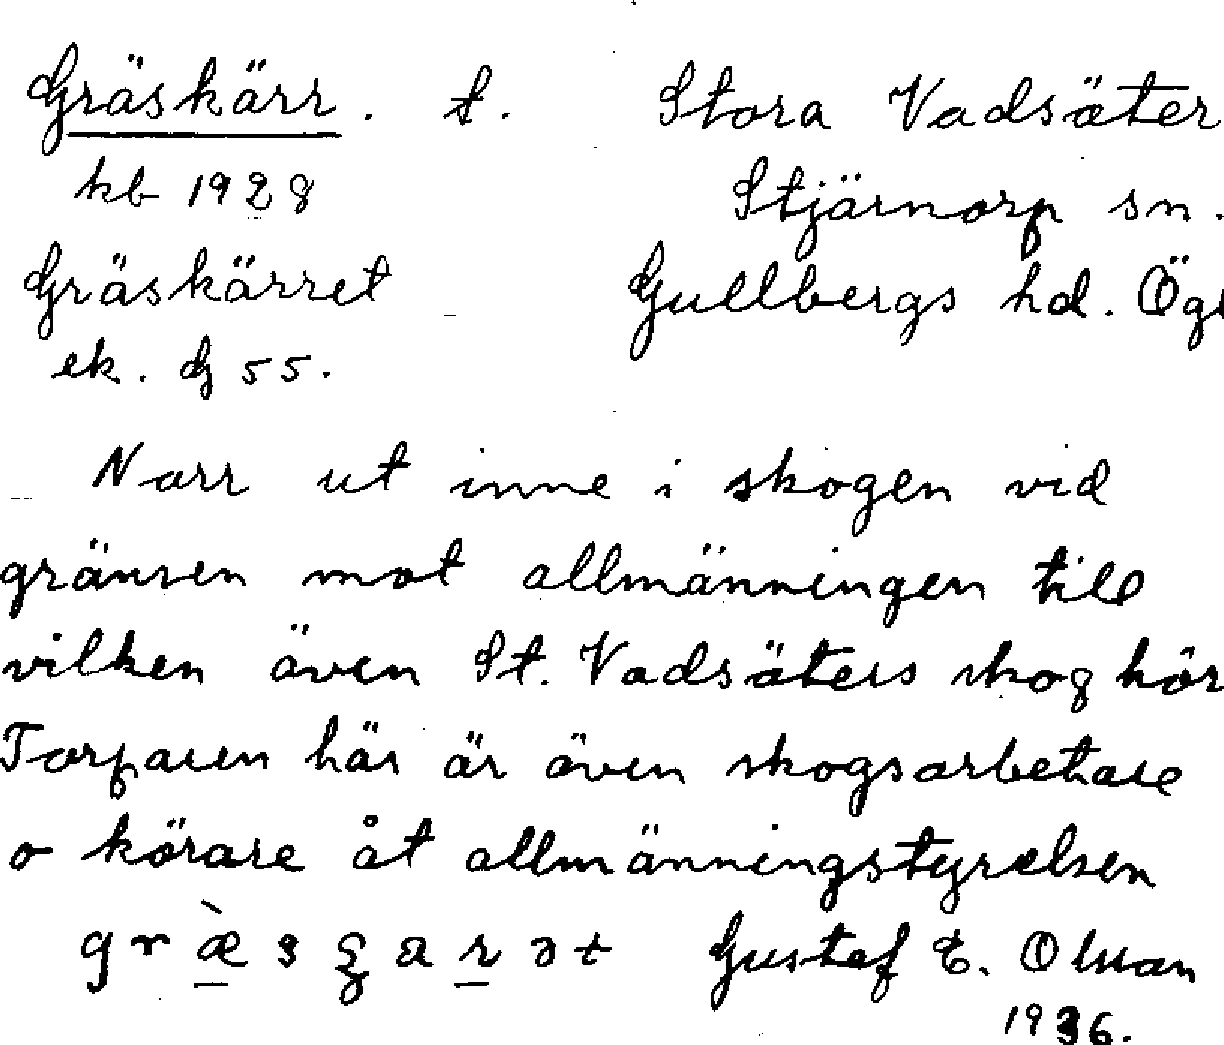 Gräskärr. t. Stora Vadsäter
kb 1928 Stjärnorp sn.
Gräskärret Gullbergs hd. Ög
ek. G 55.
Narr ut inne i skogen vid
gränsen mot allmänningen till
vilken även St. Vadsäters skog hör
Torparen här är även skogsarbetare
o körare åt allmänningstyrelsen
Gustaf E. Olsson
1936.